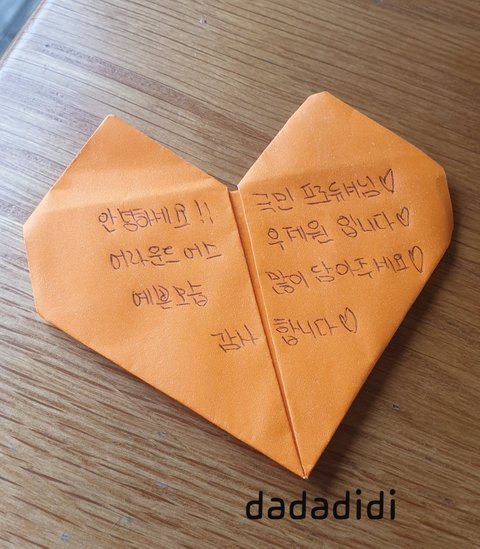 안녕하세요!! 국민 프로듀서님♡
어라운드 어스 우제원 입니다♡
예쁜모습 많이 담아주세요♡
감사 합니다♡
dadadidi